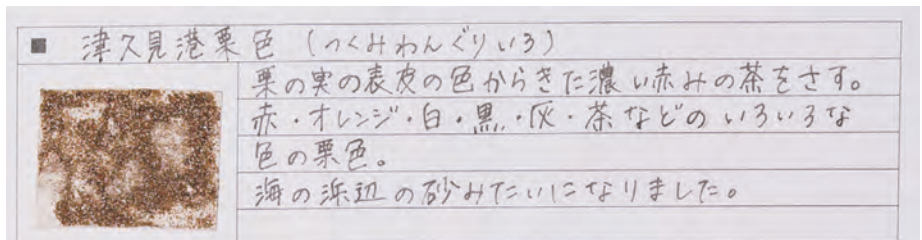 ■ 津久見港栗色(つくみわんぐりいろ)
栗の実の表皮の色からきた濃い赤みの茶をさす。
赤・オレンジ・白・黒・灰・茶などのいろいろな
色の栗色。
海の浜辺の砂みたいになりました。